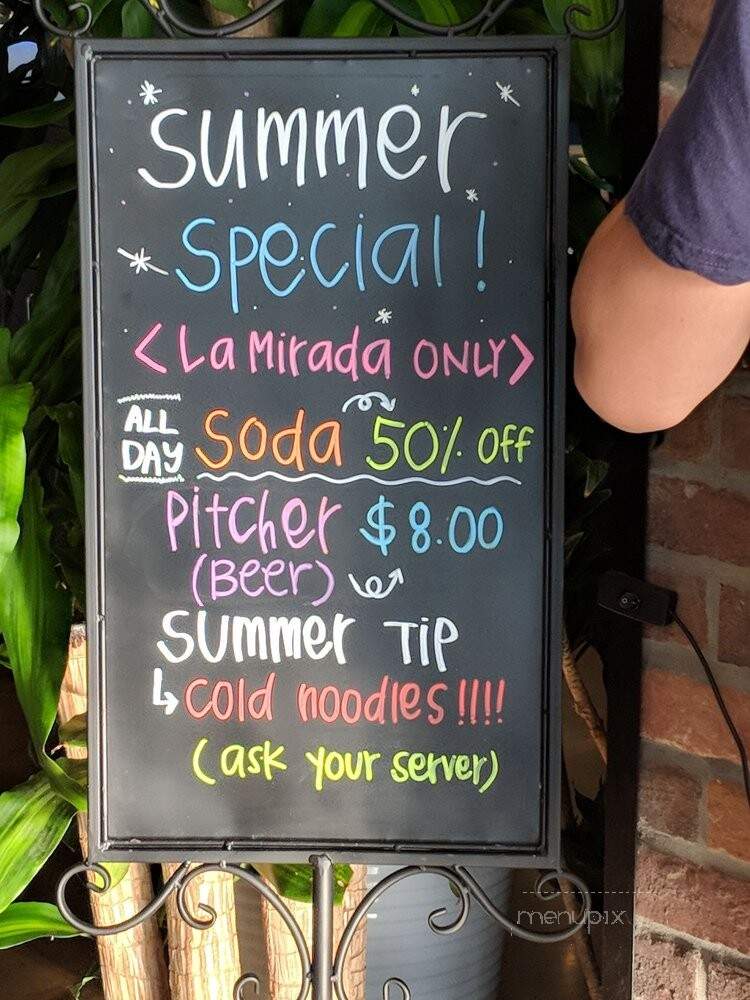 Summer
Special!
<La Mirada ONLY>
ALL DAY Soda 50% off
Pitcher $8.00
(Beer)
Summer Tip
↳cold noodles!!!!
(ask your server)
menupix